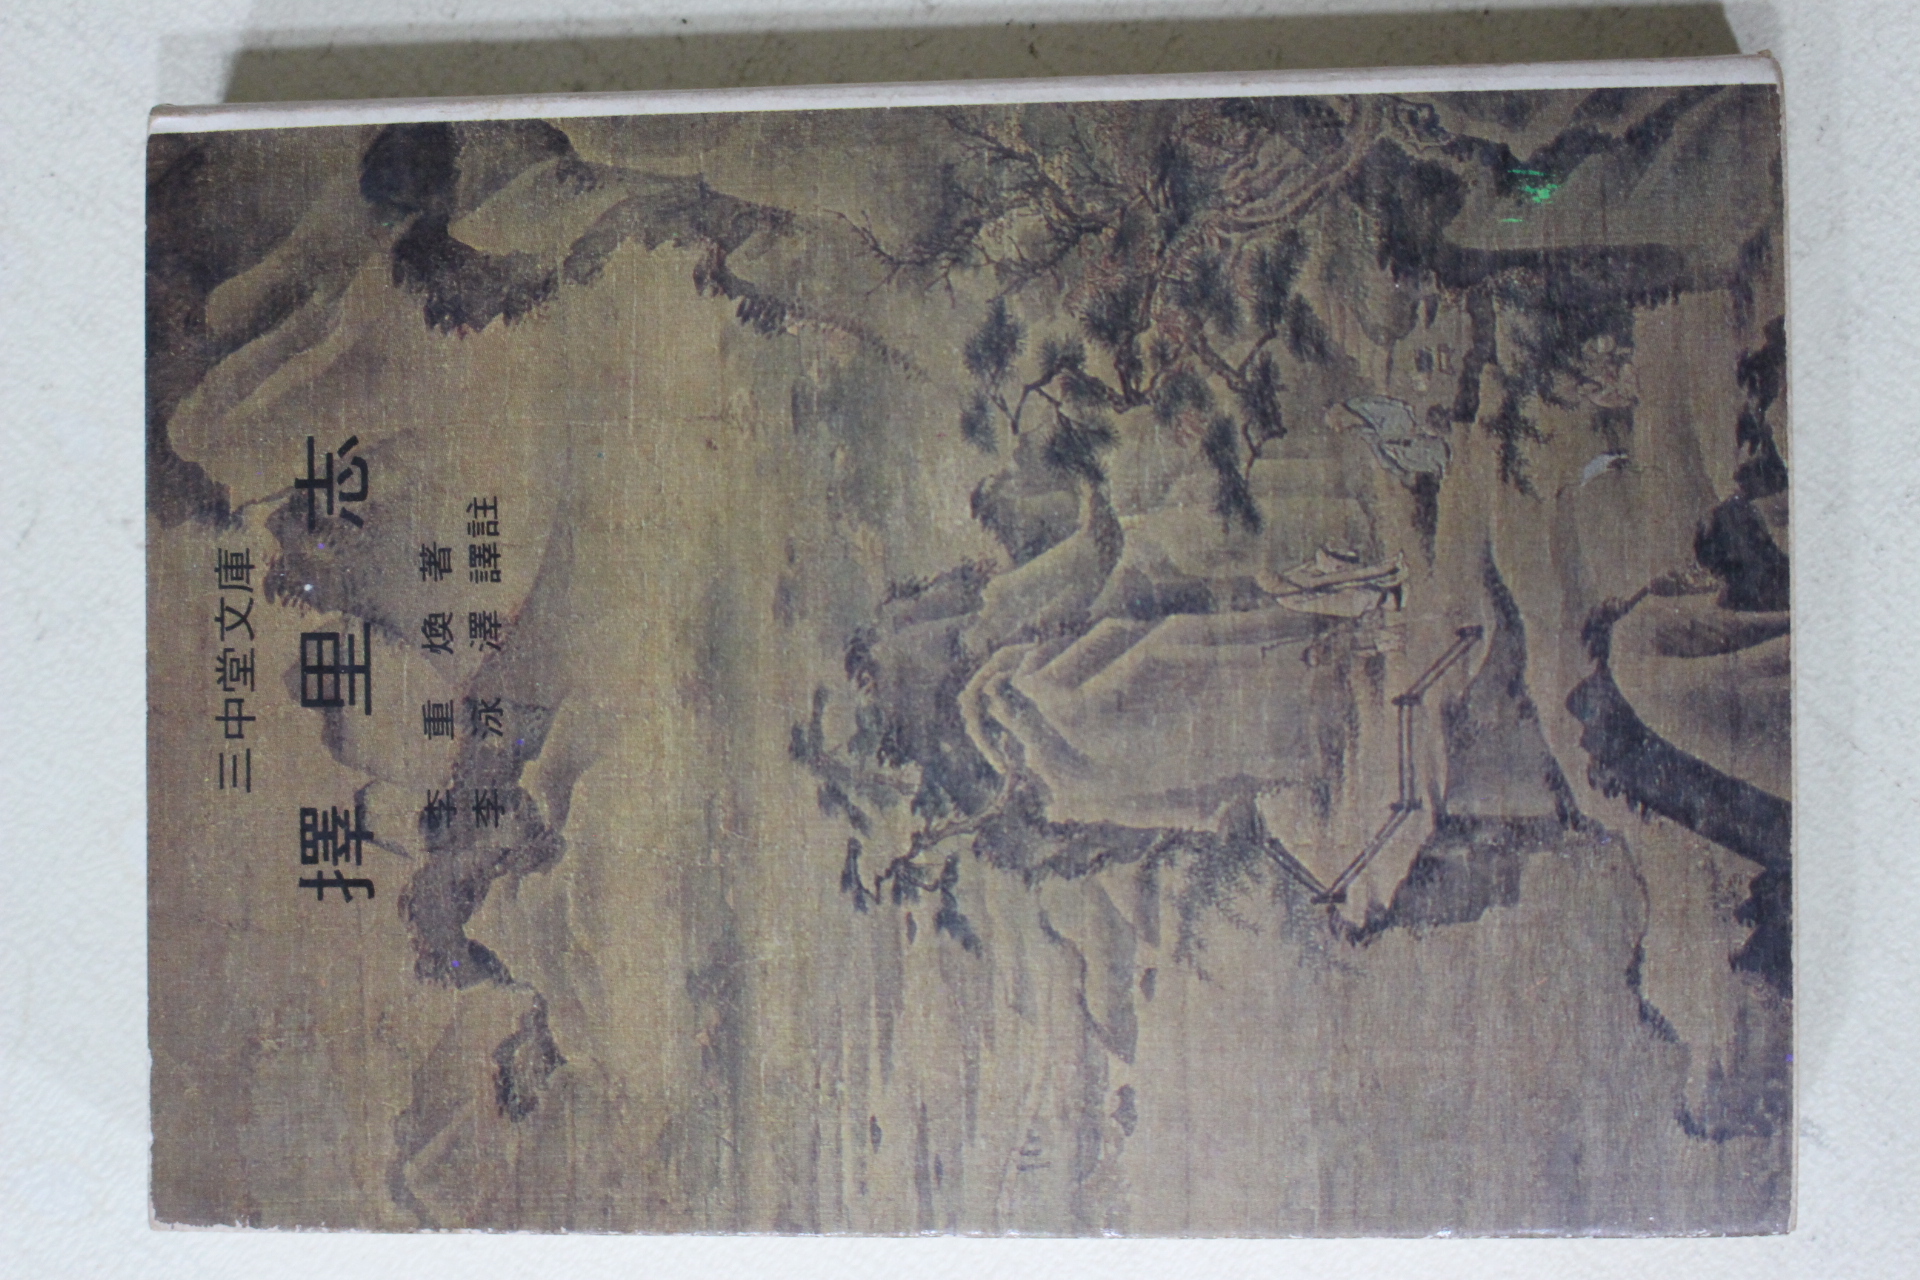 三中堂文庫
擇里志
李重煥 著
李泳澤 譯註